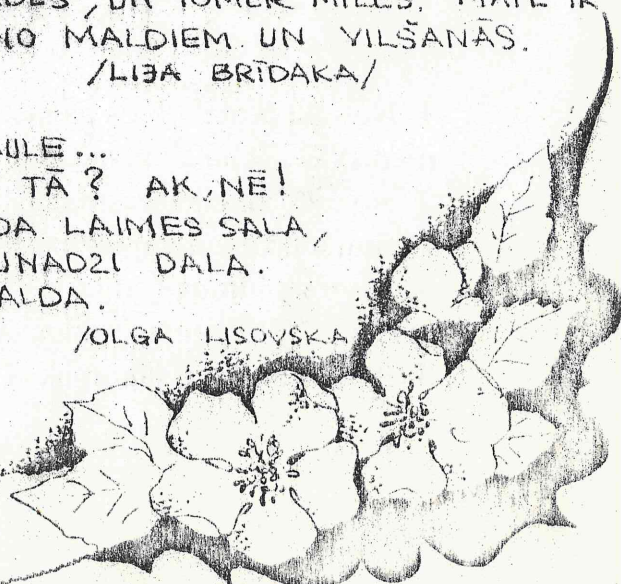 UN TOMĒR MĪLĒS. MĀTE IR
MALDIEM UN VILŠANĀS.
/LIJA BRĪDAKA/
TĀ? AK, NĒ!
LAIMES SALA,
DALA.
/OLGA LISOVSKA